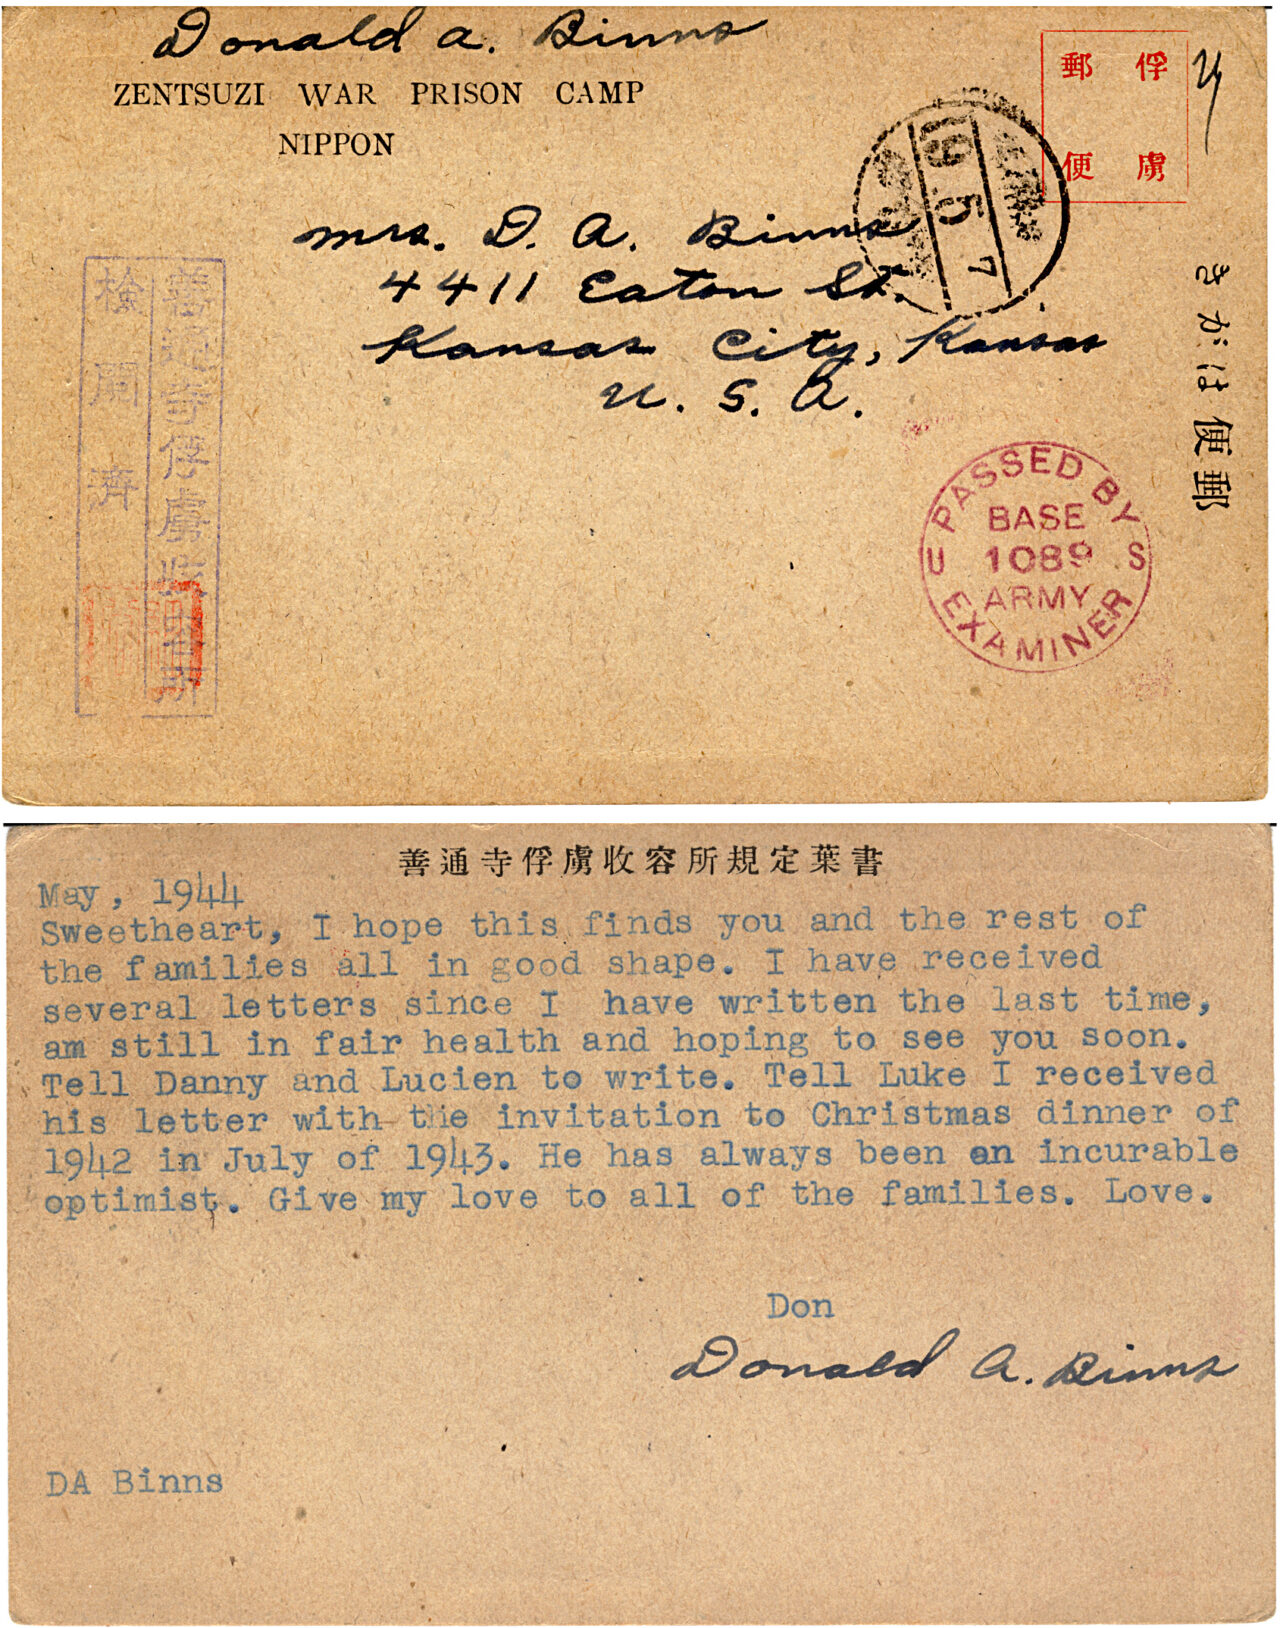 Donald A. Binns
ZENTSUZI WAR PRISON CAMP
NIPPON
俘虜
郵便
19.5.7
Mrs. D. A. Binns
4411 Eaton St.
Kansas City, Kansas
U. S. A.
きがは便郵
善通寺俘虜收容所
検閲濟
PASSED BY
BASE
U 1089 S
ARMY
EXAMINER
善通寺俘虜收容所規定葉書
May, 1944
Sweetheart, I hope this finds you and the rest of
the families all in good shape. I have received
several letters since I have written the last time,
am still in fair health and hoping to see you soon.
Tell Danny and Lucien to write. Tell Luke I received
his letter with the invitation to Christmas dinner of
1942 in July of 1943. He has always been an incurable
optimist. Give my love to all of the families. Love.
Don
Donald A. Binns
DA Binns